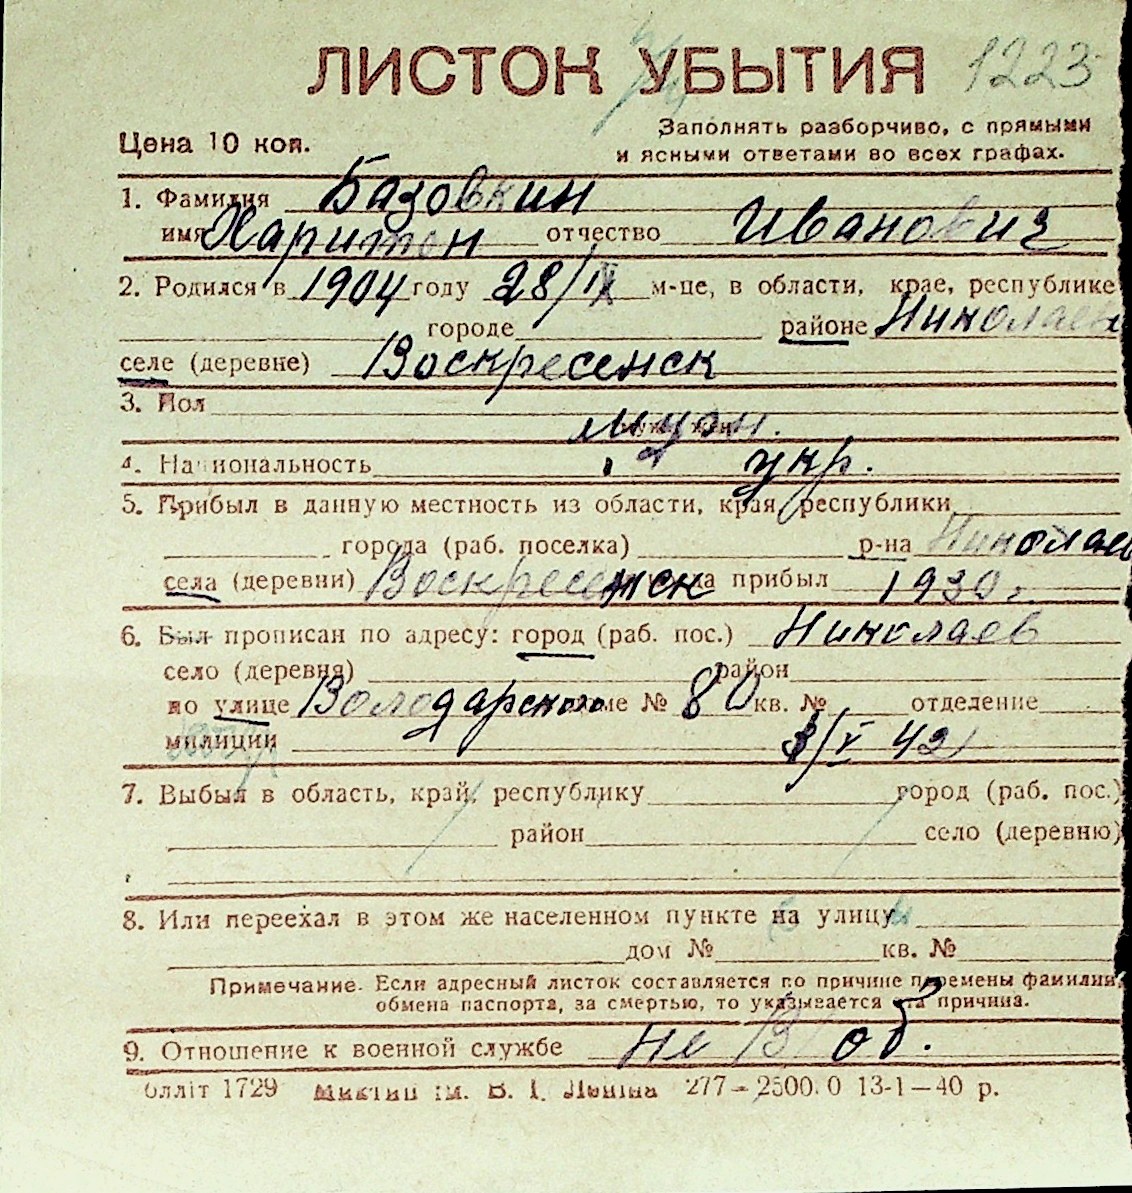 ЛИСТОК УБЫТИЯ 1223
Заполнять разборчиво, с прямыми
Цена 10 коп.
и ясными ответами во всех графах.
1. Фамилия Базовкин
имя Харитон отчество Иванович
2. Родился в 1904 году 28/IX м-це, в области, крае, республике
городе районе Николаев
селе (деревне) Воскресенск
3. Пол
муж.
4. Национальность укр.
5. Прибыл в данную местность из области, края, республики
города (раб. поселка) р-на Николаев
села (деревни) Воскресенск прибыл 1930 г.
6. Был прописан по адресу: город (раб. пос.) Николаев
село (деревня) район
по улице Володарского № 80 кв. № отделение
милиции 3/V 42
7. Выбыл в область, край, республику город (раб. пос.)
район село (деревню)
8. Или переехал в этом же населенном пункте на улицу
дом № кв. №
Примечание. Если адресный листок составляется по причине перемены фамилии,
обмена паспорта, за смертью, то указывается эта причина.
9. Отношение к военной службе не В об.
1729 В. І. 277 – 2500.0 13-1—40 р.